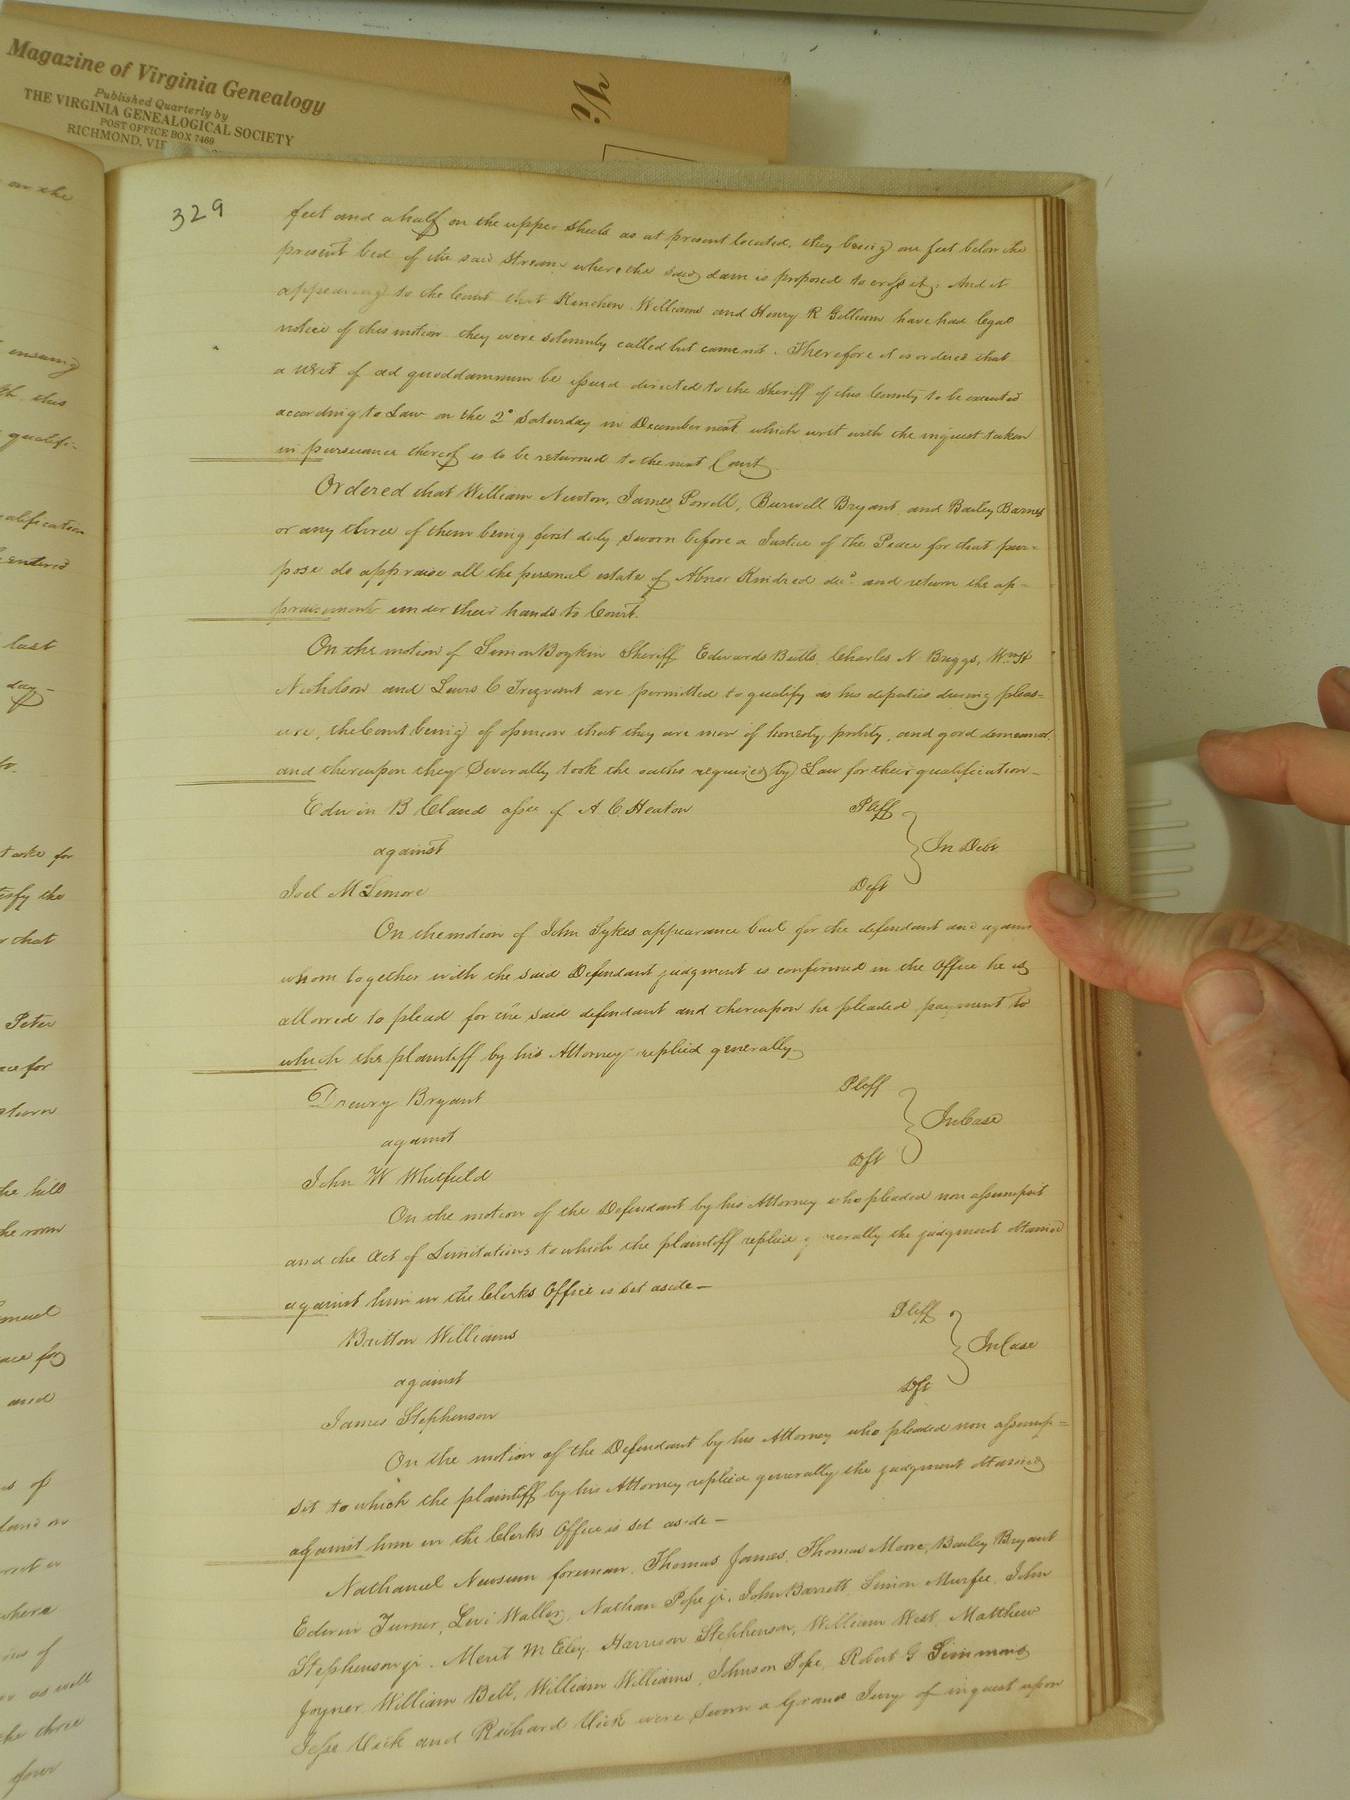 Magazine of Virginia Genealogy
Published Quarterly by
THE VIRGINIA GENEALOGICAL SOCIETY
POST OFFICE BOX 7469
RICHMOND, VI
Vi
329
feet and a half on the upper sheels as at present located, they being one feet below the
present bed of the said Stream where the said dam is proposed to cross it. And it
appearing to the Court that Kinchen Williams and Henry R Gilliam have had legal
notice of this motion they were solemnly called but came not. Therefore it is ordered that
a writ of ad quoddamnum be issued directed to the Sheriff of this County to be executed
according to Law on the 2d Saturday in December next which writ with the inquest taken
in pursuance thereof is to be returned to the next Court
Ordered that William Newton, James Powell, Burwell Bryant and Bailey Barnes
or any three of them being first duly sworn before a Justice of the Peace for that pur=
pose do appraise all the personal estate of Abner Kindred decd. and return the ap-
praisement under their hands to Court.
On the motion of Simon Boykin Sheriff Edwards Butts, Charles N Briggs, Wm H
Nicholson and Lewis C Trezvant are permitted to qualify as his deputies during pleas=
ure, the Court being of opinion that they are men of honesty, probity, and good demeanor
and thereupon they Severally took the oaths required by Law for their qualification-
Edwin B Claud assee of A. C. Heaton Pltff
against In Debt
Joel McLemore Deft
On the motion of John Sykes appearance bail for the defendant and against
whom together with the said Defendant judgment is confirmed in the Office he is
allowed to plead for the said defendant and thereupon he pleaded payment to
which the plaintiff by his Attorney replied generally
Drewry Bryant Pltff
against In Case
John W Whitfield Dft
On the motion of the Defendant by his Attorney who pleaded non assumpsit
and the Act of Limitations to which the plaintiff replied generally the judgment obtained
against him in the Clerks Office is set aside-
Britton Williams Pltff
against In Case
James Stephenson Dft
On the motion of the Defendant by his Attorney who pleaded non assump=
sit to which the plaintiff by his Attorney replied generally the judgment obtained
against him in the Clerks Office is set aside-
Nathaniel Newsum foreman, Thomas James, Thomas Moore, Bailey Bryant
Edwin Turner, Levi Waller, Nathan Pope jr. John Barrett, Simon Murfee, John
Stephenson jr. Merit M Eley, Harrison Stephenson, William West, Matthew
Joyner William Bell, William Williams, Johnson Pope, Robert G Simmons
Jesse Vick and Richard Vick were sworn a Grand Jury of inquest upon